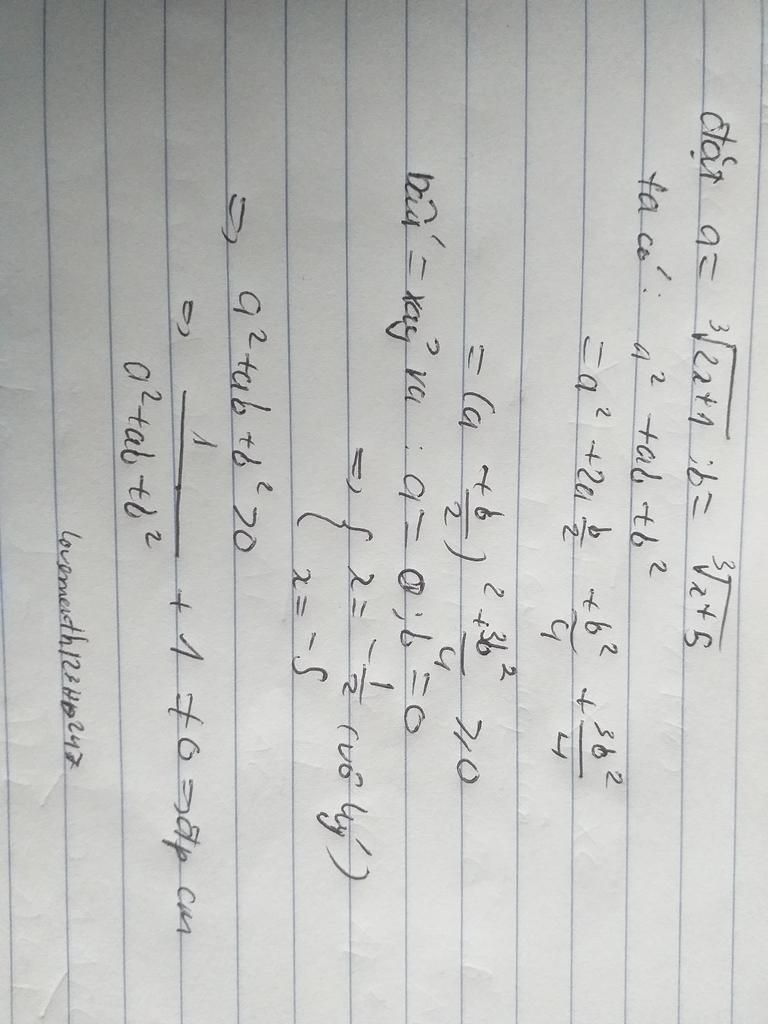 Đặt a = ∛(2x+1) ; b = ∛(x+5)
ta có : a² + ab + b²
= a² + 2a b/2 + b²/4 + 3b²/4
= (a + b/2)² + 3b²/4 ≥ 0
Dấu = xảy ra : a = 0 ; b = 0
=> { x = -1/2 (vô lý)
{ x = -5
=> a² + ab + b² > 0
=> 1/(a² + ab + b²) + 1 ≠ 0 => đpcm